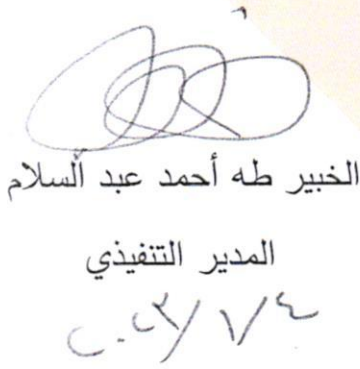 الخبير طه أحمد عبد السلام
المدير التنفيذي
٢٠٢٣/١/٤